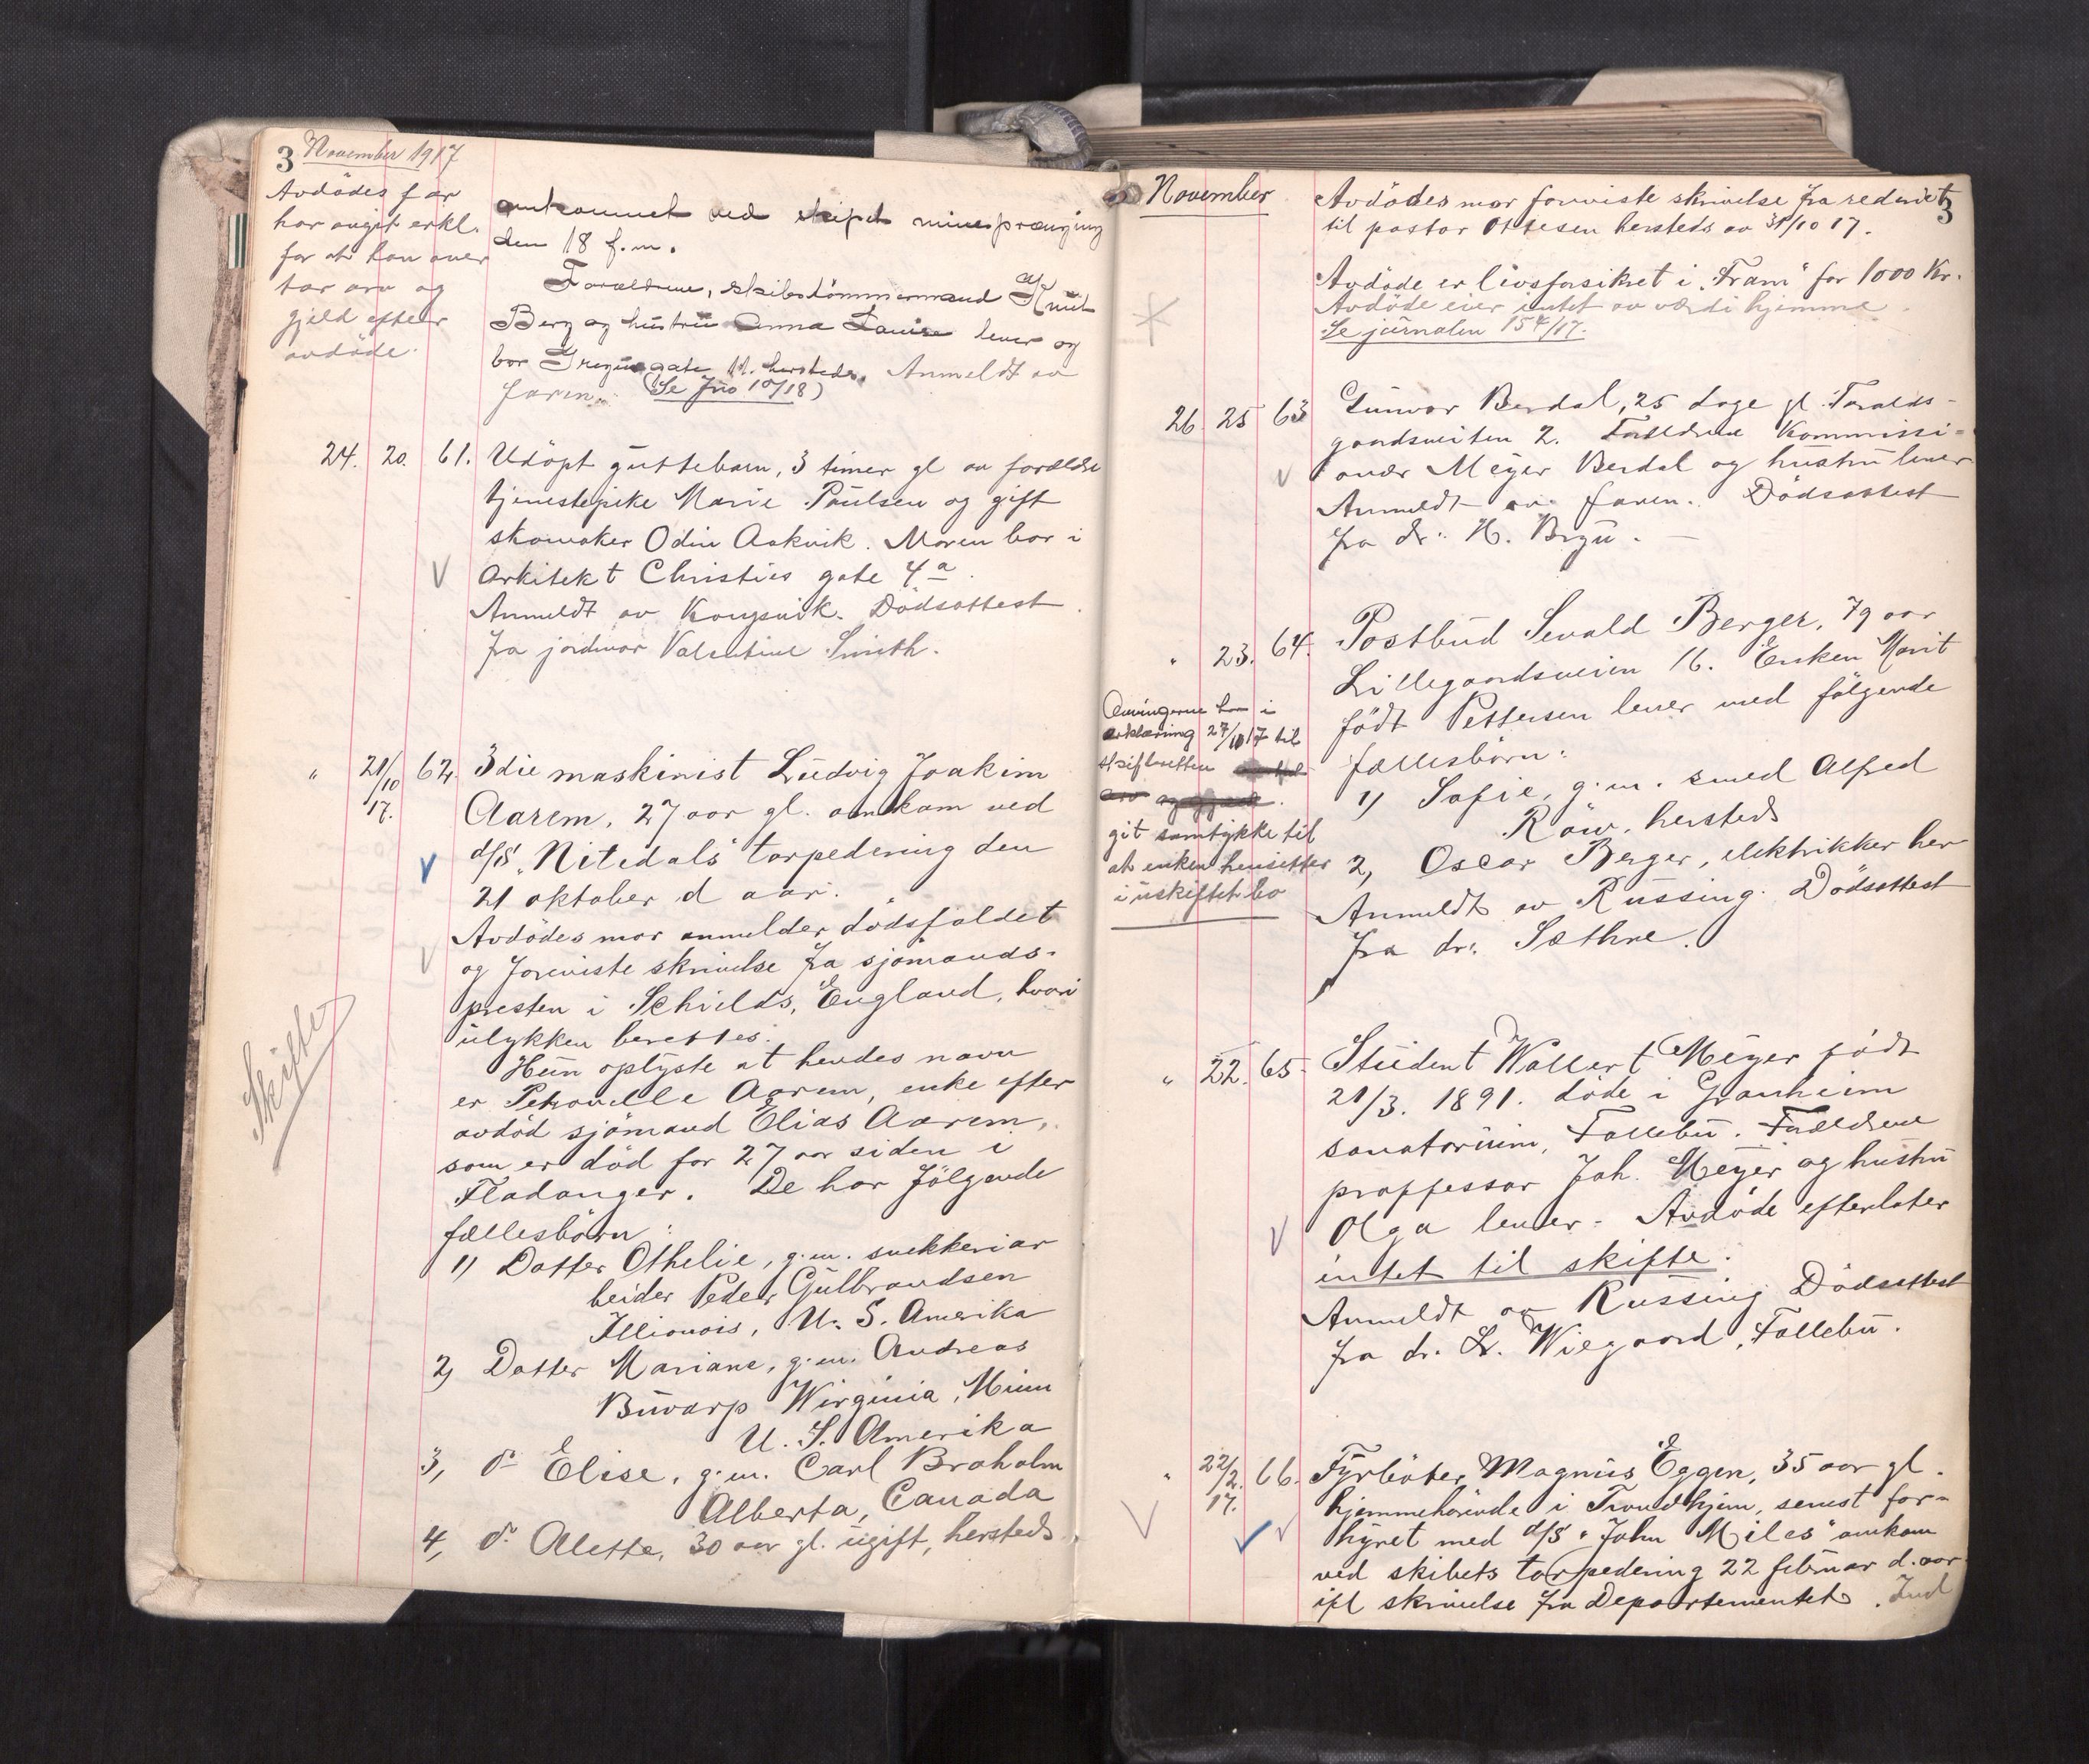 3 November 1917
Avdödes far
har avgit erkl.
for at han over
tar arv og
gjæld efter
avdöde.
omkommet ved skipet minesprængning
den 18 f.m.
Forældrene, skibstömmermand Knut
Berg og hustru Anna Lovise lever og
bor gate 11. hersteds. Anmeldt av
faren. (Se Jno 10/18)
24. 20. 61. Udöpt guttebarn, 3 timer gl av forældre
tjenestepike Marie Paulsen og gift
skomaker Odin Aakvik. Moren bor i
Arkitekt Christies gate 4a.
Anmeldt av Kongsvik. Dödsattest
fra jordmor Valentine Smith.
" 21/10 17. 62. 3die maskinist Ludvig Joakim
Aarem, 27 aar gl. omkom ved
d/s "Nitedals" torpedering den
21 oktober d aar.
Avdödes mor anmelder dödsfaldet
og foreviste skrivelse fra sjömands-
presten i Schields, England, hvori
ulykken berettes.
Hun oplyste at hendes navn
er Petronelle Aarem, enke efter
avdöd sjömand Elias Aarem,
som er död for 27 aar siden i
Fladanger. De har fölgende
fællesbörn:
Skifte
1) Datter Othelie, g.m. snekkeriar
beider Peder Gulbrandsen
Illionois, U. S. Amerika
2) Datter Mariane, g.m. Andreas
Buvarp Wirginia, Minn
U. S. Amerika
3, do Elise, g.m. Carl Braholm
Alberta, Canada
4, do Alette, 30 aar gl. ugift, hersteds.
November
3
Avdödes mor foreviste skrivelse fra rederiet
til pastor Ottesen hersteds av 31/10 17.
Avdöde er livsforsikret i "Fram" for 1000 Kr.
Avdöde eier intet av værdi hjemme.
Se journalen 154/17.
26. 25 63 Gunvor Berdal, 25 dage gl. Taralds-
gaardsveiten 2. Forældrene Kommissi-
onær Meyer Berdal og hustru lever
Anmeldt av faren. Dödsattest
fra dr. H. Bryn.
" 23. 64. Postbud Sevald Berger, 79 aar
Lillegaardsveien 16. Enken Marit
födt Pettersen lever med fölgende
fællesbörn:
1) Sofie, g.m. smed Alfred
Röw, hersteds
2, Oscar Berger, elektrikker her
Anmeldt av Russing. Dödsattest
fra dr. Sæthre.
Arvingerne har i
erklæring 27/10 17 til
skifteretten
git samtykke til
at enken hensitter
i uskiftet bo
" 22. 65. Student Wallert Meyer födt
21/3. 1891. döde i Granheim
sanatorium, Follebu. Forældrene
proffessor Joh. Meyer og hustru
Olga lever. Avdöde efterlater
intet til skifte.
Anmeldt av Russing Dödsattest
fra dr. L. Wiegaard, Follebu.
" 22/2. 17. 66. Fyrböter Magnus Eggen, 35 aar gl.
hjemmehörende i Trondhjem, senest for-
hyret med d/s "John Miles" omkom
ved skibets torpedering 22 februar d. aar
ifl skrivelse fra Departementet. Ind